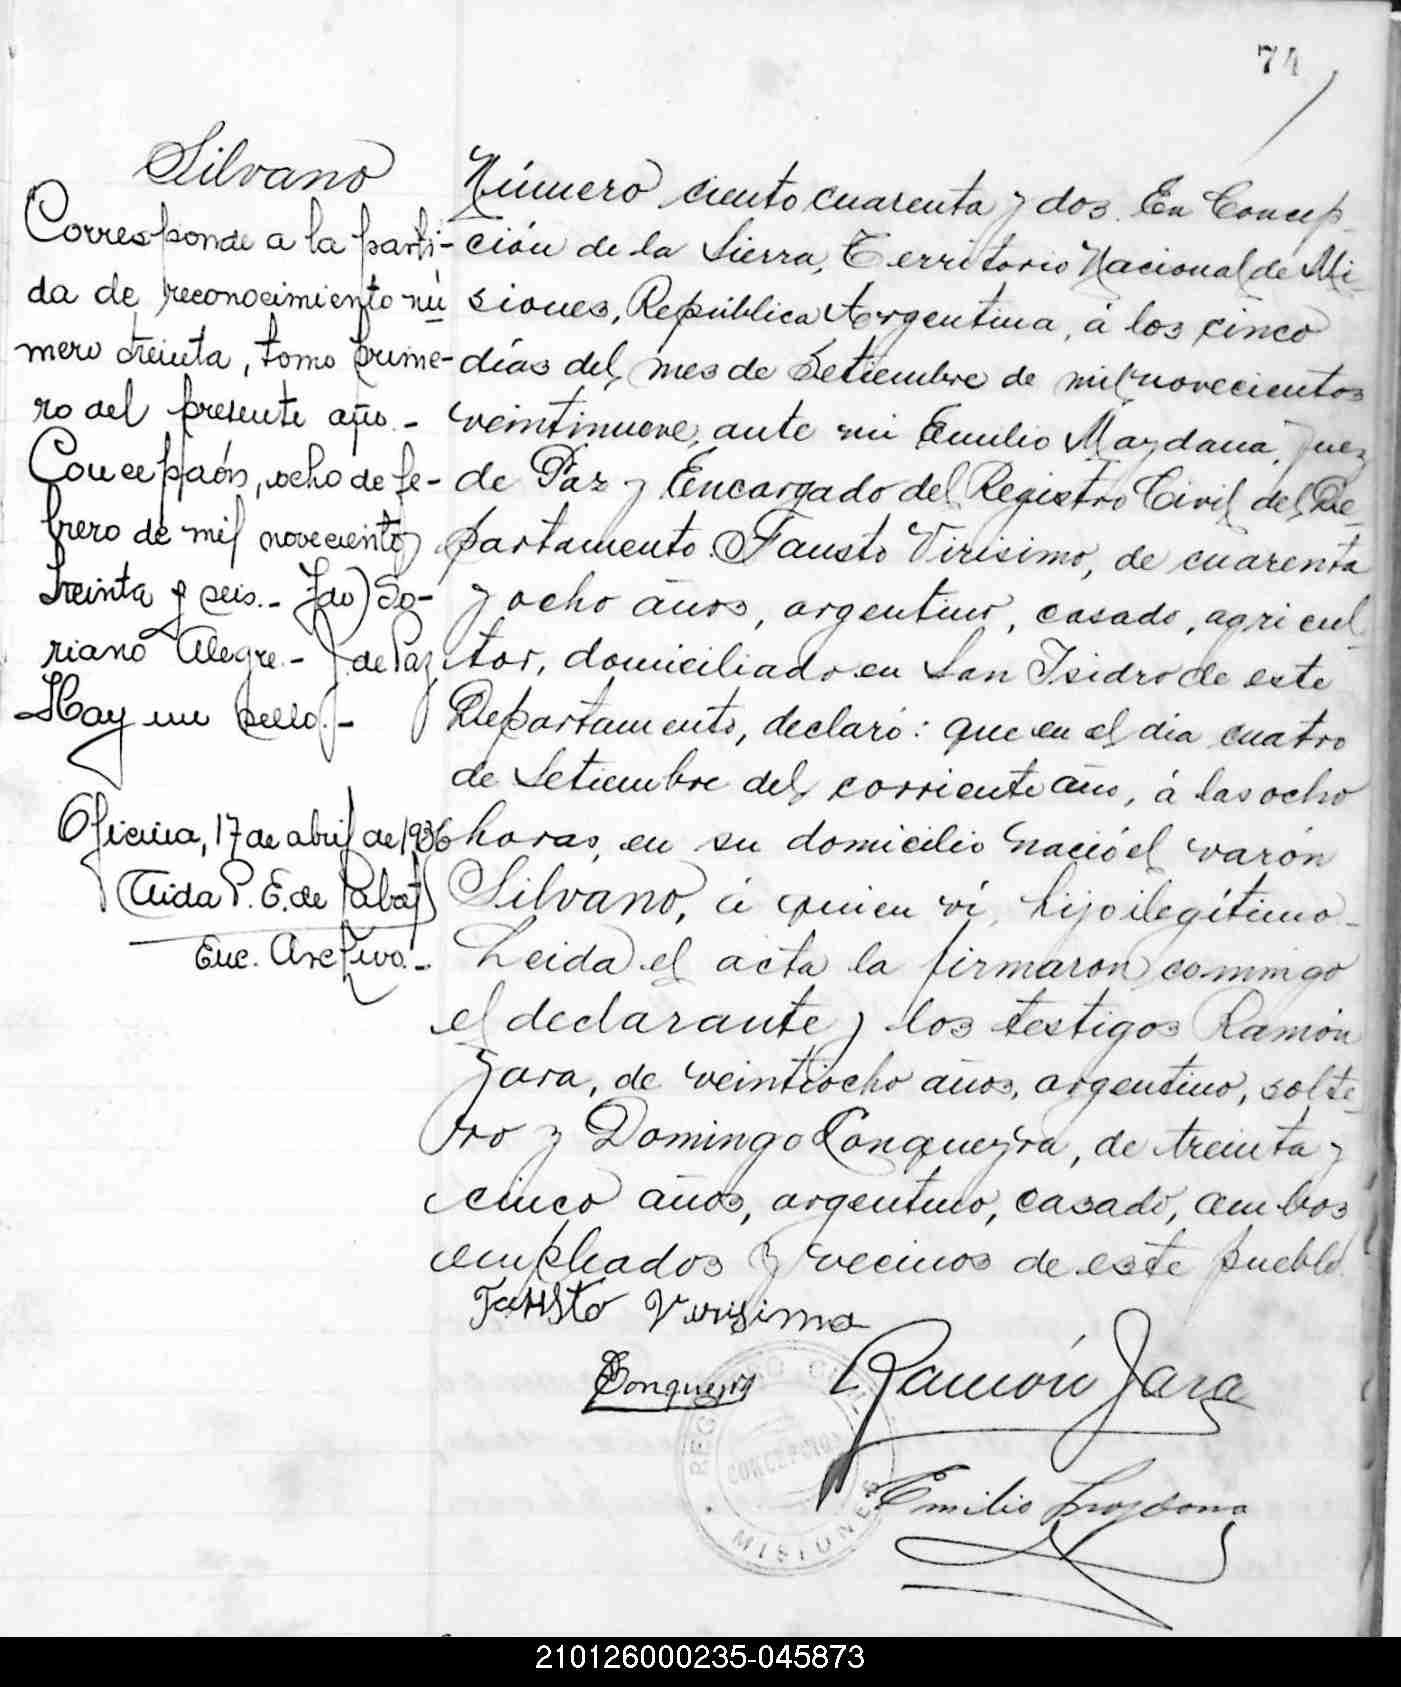 74
Silvano
Corresponde a la parti-
da de reconocimiento nú
mero treinta, tomo prime-
ro del presente año.-
Concepción, ocho de fe-
brero de mil novecientos
treinta y seis.- Fdo) So-
riano Alegre.- J. de Paz
Hay un sello.-
Oficina, 17 de abril de 1936
Aida P. E. de
Enc. Archivo.-
Número ciento cuarenta y dos. En Concep-
ción de la Sierra, Territorio Nacional de Mi-
siones, República Argentina, á los cinco
días del mes de Setiembre de mil novecientos
veintinueve, ante mi Emilio Maydana, Juez
de Paz y Encargado del Registro Civil del De-
partamento. Fausto Virisimo, de cuarenta
y ocho años, argentino, casado, agricul-
tor, domiciliado en San Isidro de este
Departamento, declaró: que en el dia cuatro
de Setiembre del corriente año, á las ocho
horas, en su domicilio nació el varón
Silvano, á quien ví, hijo ilegítimo.
Leida el acta la firmaron conmigo
el declarante y los testigos Ramón
Jara, de veintiocho años, argentino, solte-
ro y Domingo Conqueyra, de treinta y
cinco años, argentino, casado, ambos
empleados y vecinos de este pueblo.
Fausto Verisimo
Conqueyra
Ramón Jara
Emilio Maydana
REGISTRO CIVIL
CONCEPCION
MISIONES
210126000235-045873